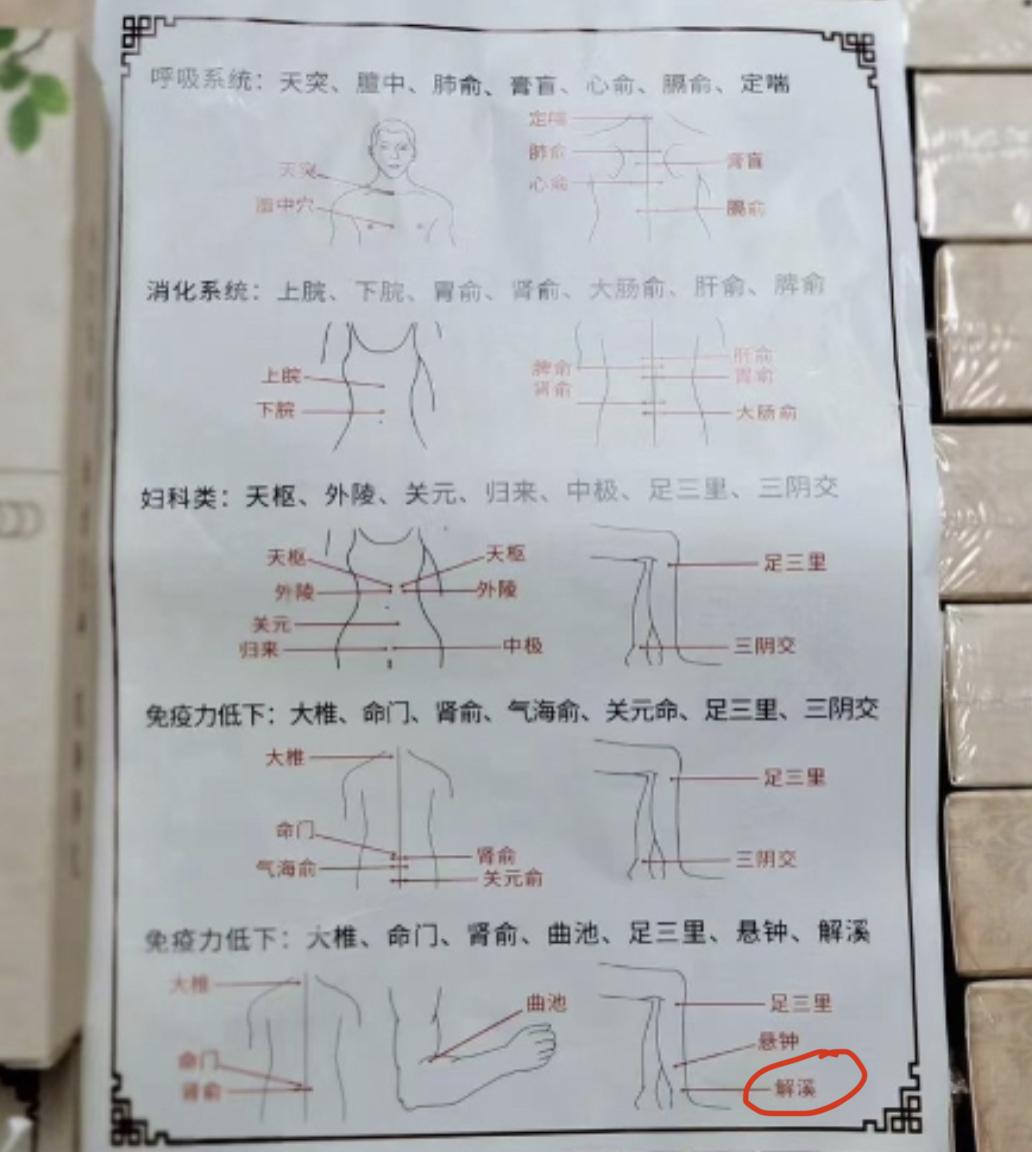 呼吸系统：天突、膻中、肺俞、膏盲、心俞、膈俞、定喘
定喘
肺俞
天突
膏盲
心俞
膻中穴
膈俞
消化系统：上脘、下脘、胃俞、肾俞、大肠俞、肝俞、脾俞
肝俞
脾俞
上脘
胃俞
肾俞
下脘
大肠俞
妇科类：天枢、外陵、关元、归来、中极、足三里、三阴交
天枢
天枢
足三里
外陵
外陵
关元
归来
中极
三阴交
免疫力低下：大椎、命门、肾俞、气海俞、关元命、足三里、三阴交
大椎
足三里
命门
肾俞
三阴交
气海俞
关元俞
免疫力低下：大椎、命门、肾俞、曲池、足三里、悬钟、解溪
大椎
曲池
足三里
悬钟
命门
肾俞
解溪